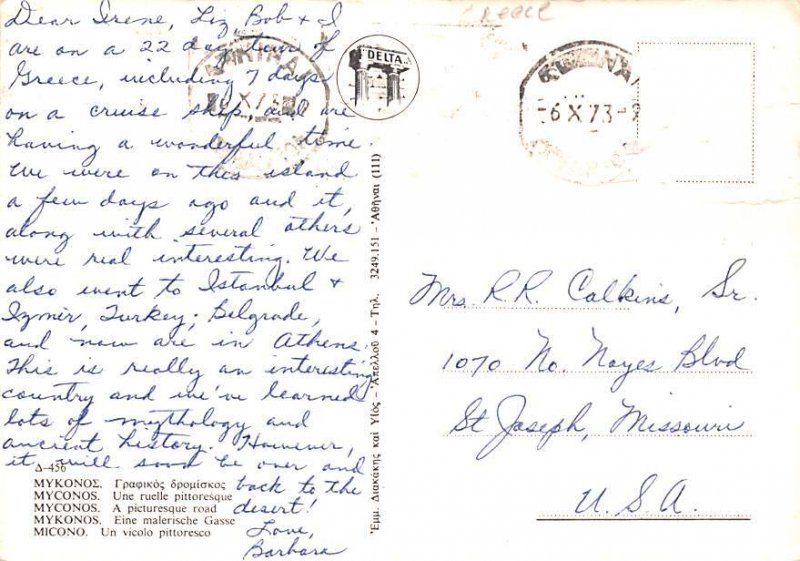 Dear Irene, Liz, Bob & I
are on a 22 day tour of
Greece, including 7 days
on a cruise ship, and are
having a wonderful time.
We were on this island
a few days ago and it,
along with several others
were real interesting. We
also went to Istanbul &
Izmir, Turkey; Belgrade,
and now are in Athens.
This is really an interesting
country and we've learned
lots of mythology and
ancient history. However,
it will soon be over and
back to the
desert!
Love,
Barbara
Δ-456
ΜΥΚΟΝΟΣ. Γραφικὸς δρομίσκος
MYCONOS. Une ruelle pittoresque
MYCONOS. A picturesque road
MYKONOS. Eine malerische Gasse
MICONO. Un vicolo pittoresco
DELTA
Ἐμμ. Διακάκης καὶ Υἱὸς - Ἀπελλοῦ 4 - Τηλ. 3249.151 - Ἀθῆναι (111)
Greece
6 X 73
Mrs. R.R. Calkins, Sr.
1070 No. Noyes Blvd
St Joseph, Missouri
U.S.A.